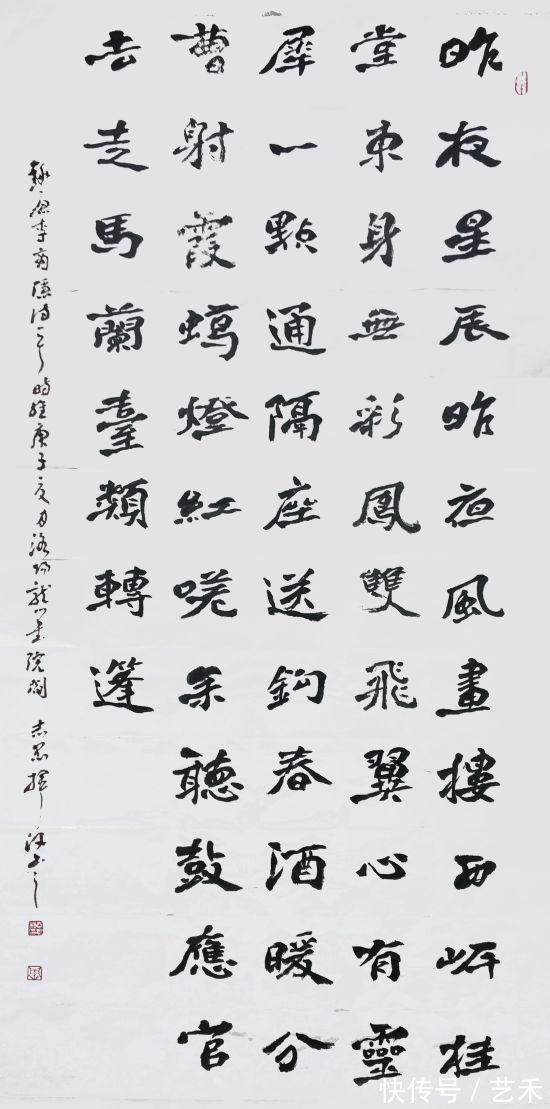 昨夜星辰昨夜風畫樓西畔桂
堂東身無彩鳳雙飛翼心有靈
犀一點通隔座送鈎春酒暖分
曹射霞蠟燈紅嗟余聽鼓應官
去走馬蘭臺類轉蓬
唐李商隱詩一首時維庚子夏月洛陽龍門書院揮汗書之
快传号 / 艺禾